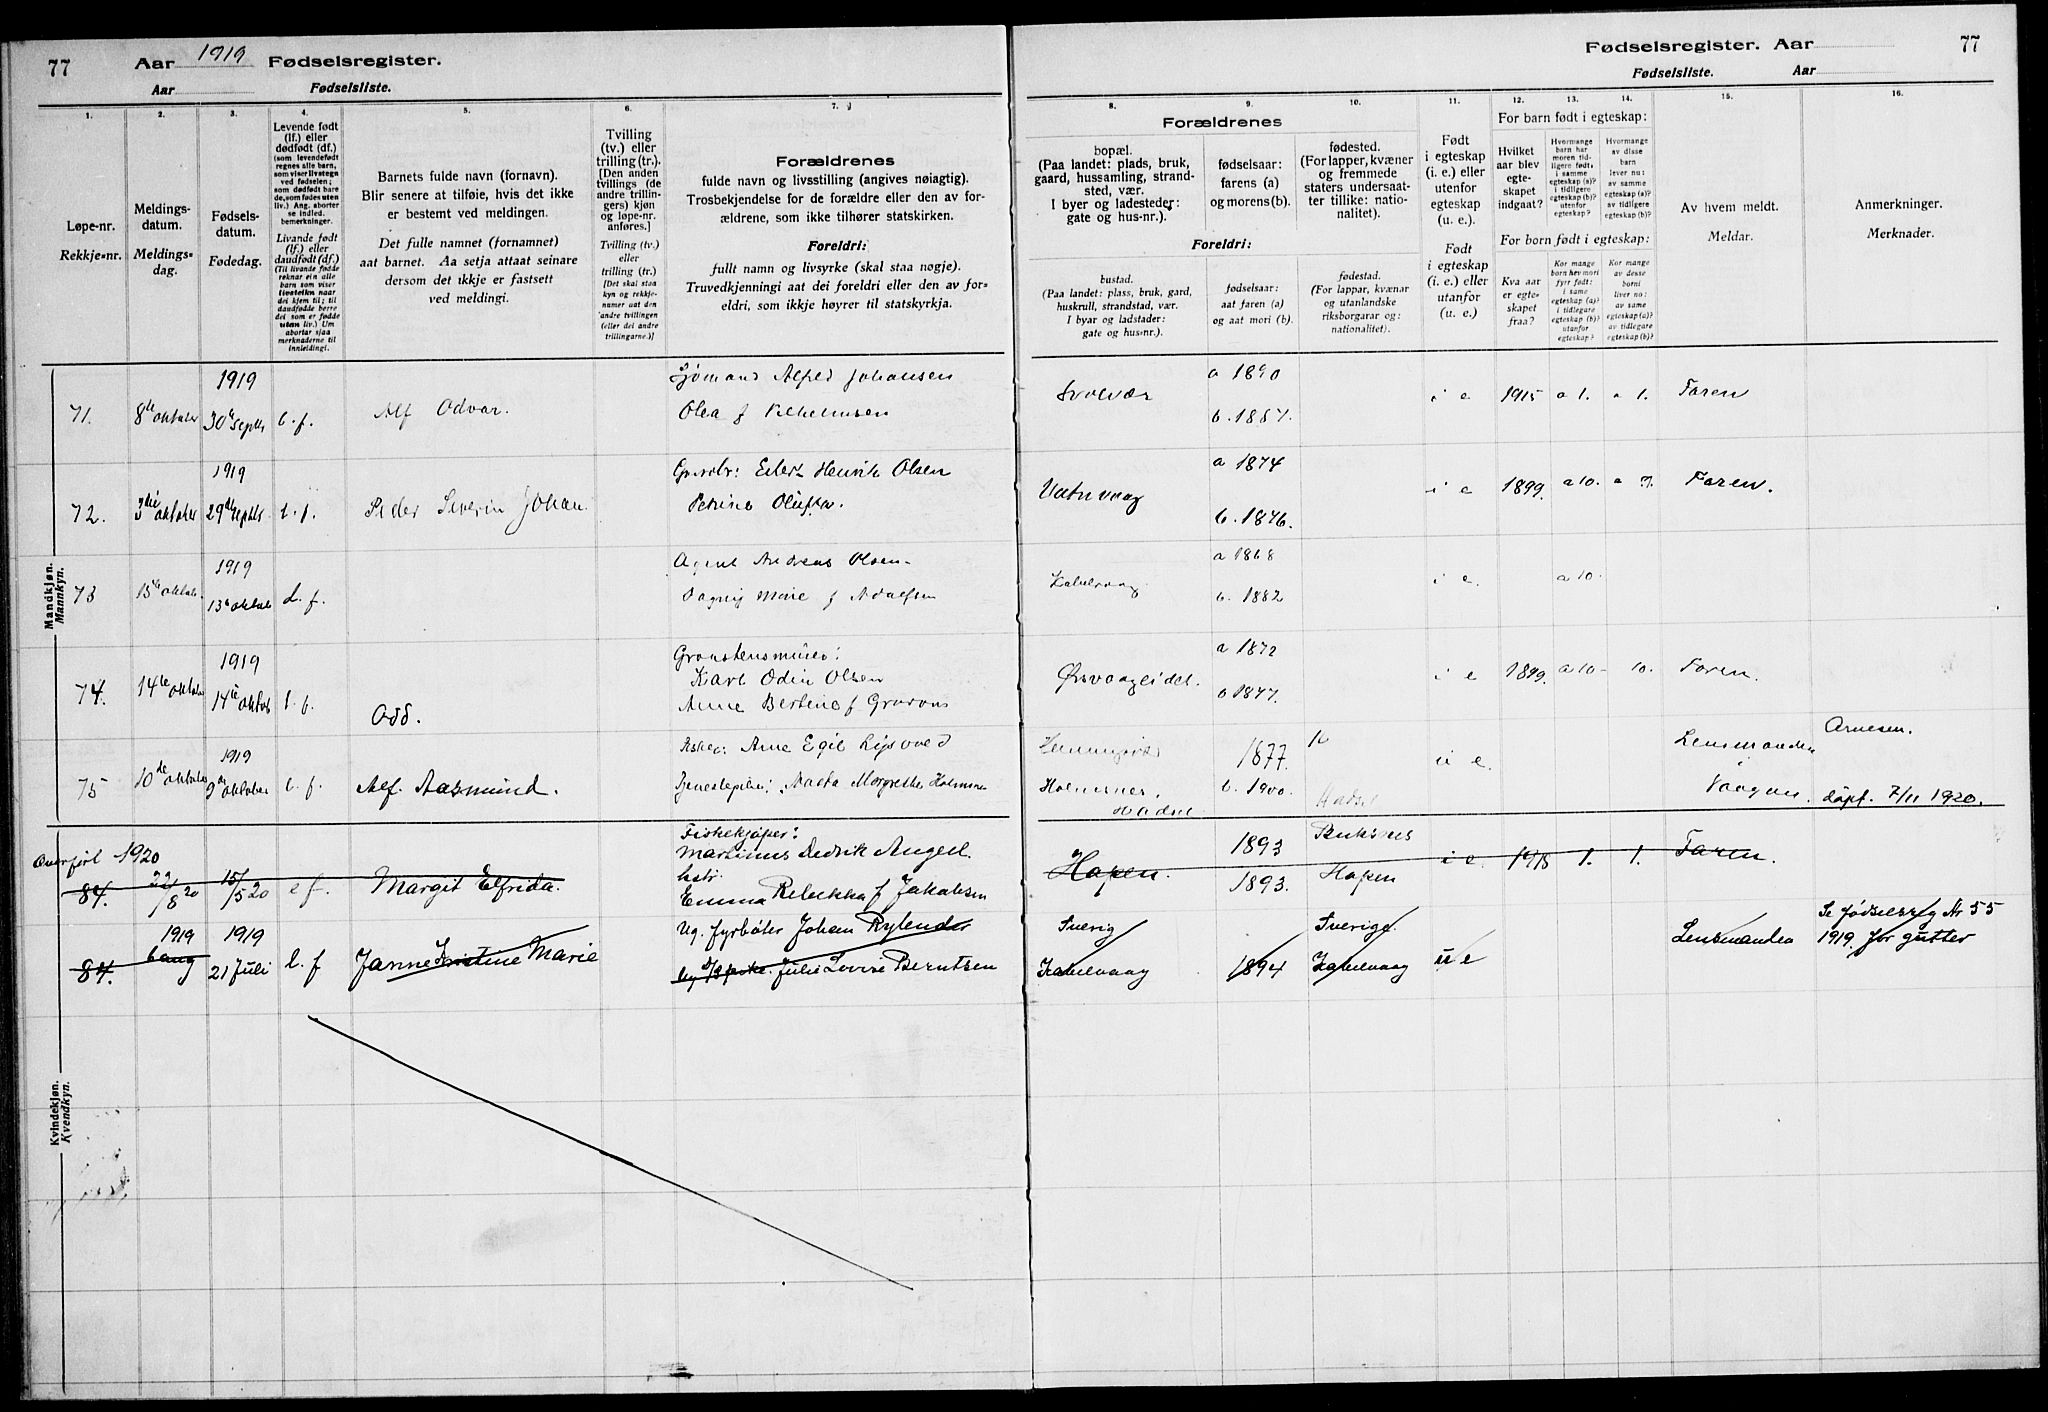 77 Aar 1919 Fødselsregister.
Aar Fødselsliste.
1. 2. 3. 4. 5. 6. 7.
Løpe-nr.
Rekkje-nr.
Meldings-
datum.
Meldings-
dag.
Fødsels-
datum.
Fødedag.
Levende født
(lf.) eller
dødfødt (df.)
(som levendefødt
regnes alle barn,
som viser livstegn
ved fødselen;
som dødfødt bare
de, som fødes uten
liv.) Ang. aborter
se indled.
bemerkninger.
Livande født
(lf.) eller
daudfødt (df.)
(Til livande fødde
reknar ein alle
barn som viser
livsteikn naar
dei kjem til; til
daudfødde berre
dei som er fødde
uten liv.) Um
abortar sjaa
merknaderne til
innleidingi.
Barnets fulde navn (fornavn).
Blir senere at tilføie, hvis det ikke
er bestemt ved meldingen.
Det fulle namnet (fornamnet)
aat barnet. Aa setja attaat seinare
dersom det ikkje er fastsett
ved meldingi.
Tvilling
(tv.) eller
trilling (tr.).
[Den anden
tvillings (de
andre trillin-
gers) kjøn
og løpe-nr.
anføres.]
Tvilling (tv.)
eller
trilling (tr.)
[Det skal staa
kyn og rekkje-
numer aat den
andre tvillingen
(eller dei andre
trillingarne.)]
Forældrenes
fulde navn og livsstilling (angives nøiagtig).
Trosbekjendelse for de forældre eller den av for-
ældrene, som ikke tilhører statskirken.
Foreldri:
fullt namn og livsyrke (skal staa nøgje).
Truvedkjenningi aat dei foreldri eller den av for-
eldri, som ikkje høyrer til statskyrkja.
Mandkjøn.
Mannkyn.
71. 8de oktober 1919 30te septbr l. f. Alf Odvar. Sjømand Alfred Johansen
Olea f Vilhelmsen
72. 3die oktober 1919 29de septbr l. f. Peder Severin Johan Eilert Henrik Olsen
Petrine
73 15de oktober 1919 13de oktober d. f. Agent Andreas Olsen
Dagny Marie f Adolfsen
74. 14de oktober 1919 14de oktob l. f. Odd. Karl Odin Olsen
Anne Bertine f
75 10de oktober 1919 9de oktober l. f. Alf. Aasmund. Arne Egil
Margrethe
Overført 1920
84. 22/8 20 15/5 20 l f. Margit Elfrida. Fiskekjøper:
Martinus Angell.
hstr.
Emma Rebekka f Jakobsen
84. 1919 6 aug 1919 21 Juli l. f Janne Kristine Marie Ug. fyrbøter Johan Rylander
Julie Lovise Berntsen
Kvindekjøn.
Kvendkyn.
Fødselsregister. Aar 77
Fødselsliste. Aar
8. 9. 10. 11. 12. 13. 14. 15. 16.
Forældrenes
bopæl.
(Paa landet: plads, bruk,
gaard, hussamling, strand-
sted, vær.
I byer og ladesteder:
gate og hus-nr.).
Foreldri:
bustad.
(Paa landet: plass, bruk, gard,
huskrull, strandstad, vær.
I byar og ladstader:
gate og hus-nr.).
fødselsaar:
farens (a)
og morens (b).
fødselsaar:
aat faren (a)
og aat mori (b).
fødested.
(For lapper, kvæner
og fremmede
staters undersaat-
ter tillike: natio-
nalitet).
fødestad.
(For lappar, kvænar
og utanlandske
riksborgarar og:
nationalitet).
Født
i egteskap
(i. e.) eller
utenfor
egteskap
(u. e.).
Født
i egteskap
(i. e.) eller
utanfor
egteskap
(u. e.).
For barn født i egteskap:
Hvilket
aar blev
egte-
skapet
indgaat?
Hvormange
barn har
moren tid-
ligere født:
i samme
egteskap (a)?
i tidligere
egteskap (b)?
utenfor
egteskap?
Hvormange
av disse
barn
lever nu:
av samme
egteskap (a)?
av tidligere
egteskap (b)?
For born født i egteskap:
Kva aar
er egte-
skapet
fraa?
Kor mange
born hev mori
fyrr født:
i same
egteskap (a)?
i tidlegare
egteskap (b)?
utanfor
egteskap?
Kor mange
av desse
borni
liver no:
av same
egteskap (a)?
av tidlegare
egteskap (b)?
Av hvem meldt.
Meldar.
Anmerkninger.
Merknader.
Svolvær a 1890
b. 1887. i e 1915 a 1. a 1. Faren
a 1874
b. 1876. i e 1899. a 10. a 7. Faren.
Kabelvaag a 1868
b. 1882 i e. a 10.
Ørsvaageidet. a 1872
1877. i e 1899. a 10 - 10. Faren.
Holmenes, Hadsel 1877.
b. 1900. Hadsel u e. Lensmanden i Vaagan. Arnesen.
døpt. 7/11 1920.
Hopen. 1893
1893. Buksnes
Hopen i e. 1918 1. 1. Faren.
Sverig
Kabelvaag 1894 Sverige.
Kabelvaag u e Lensmanden Se fødselsreg Nr 55
1919. for gutter